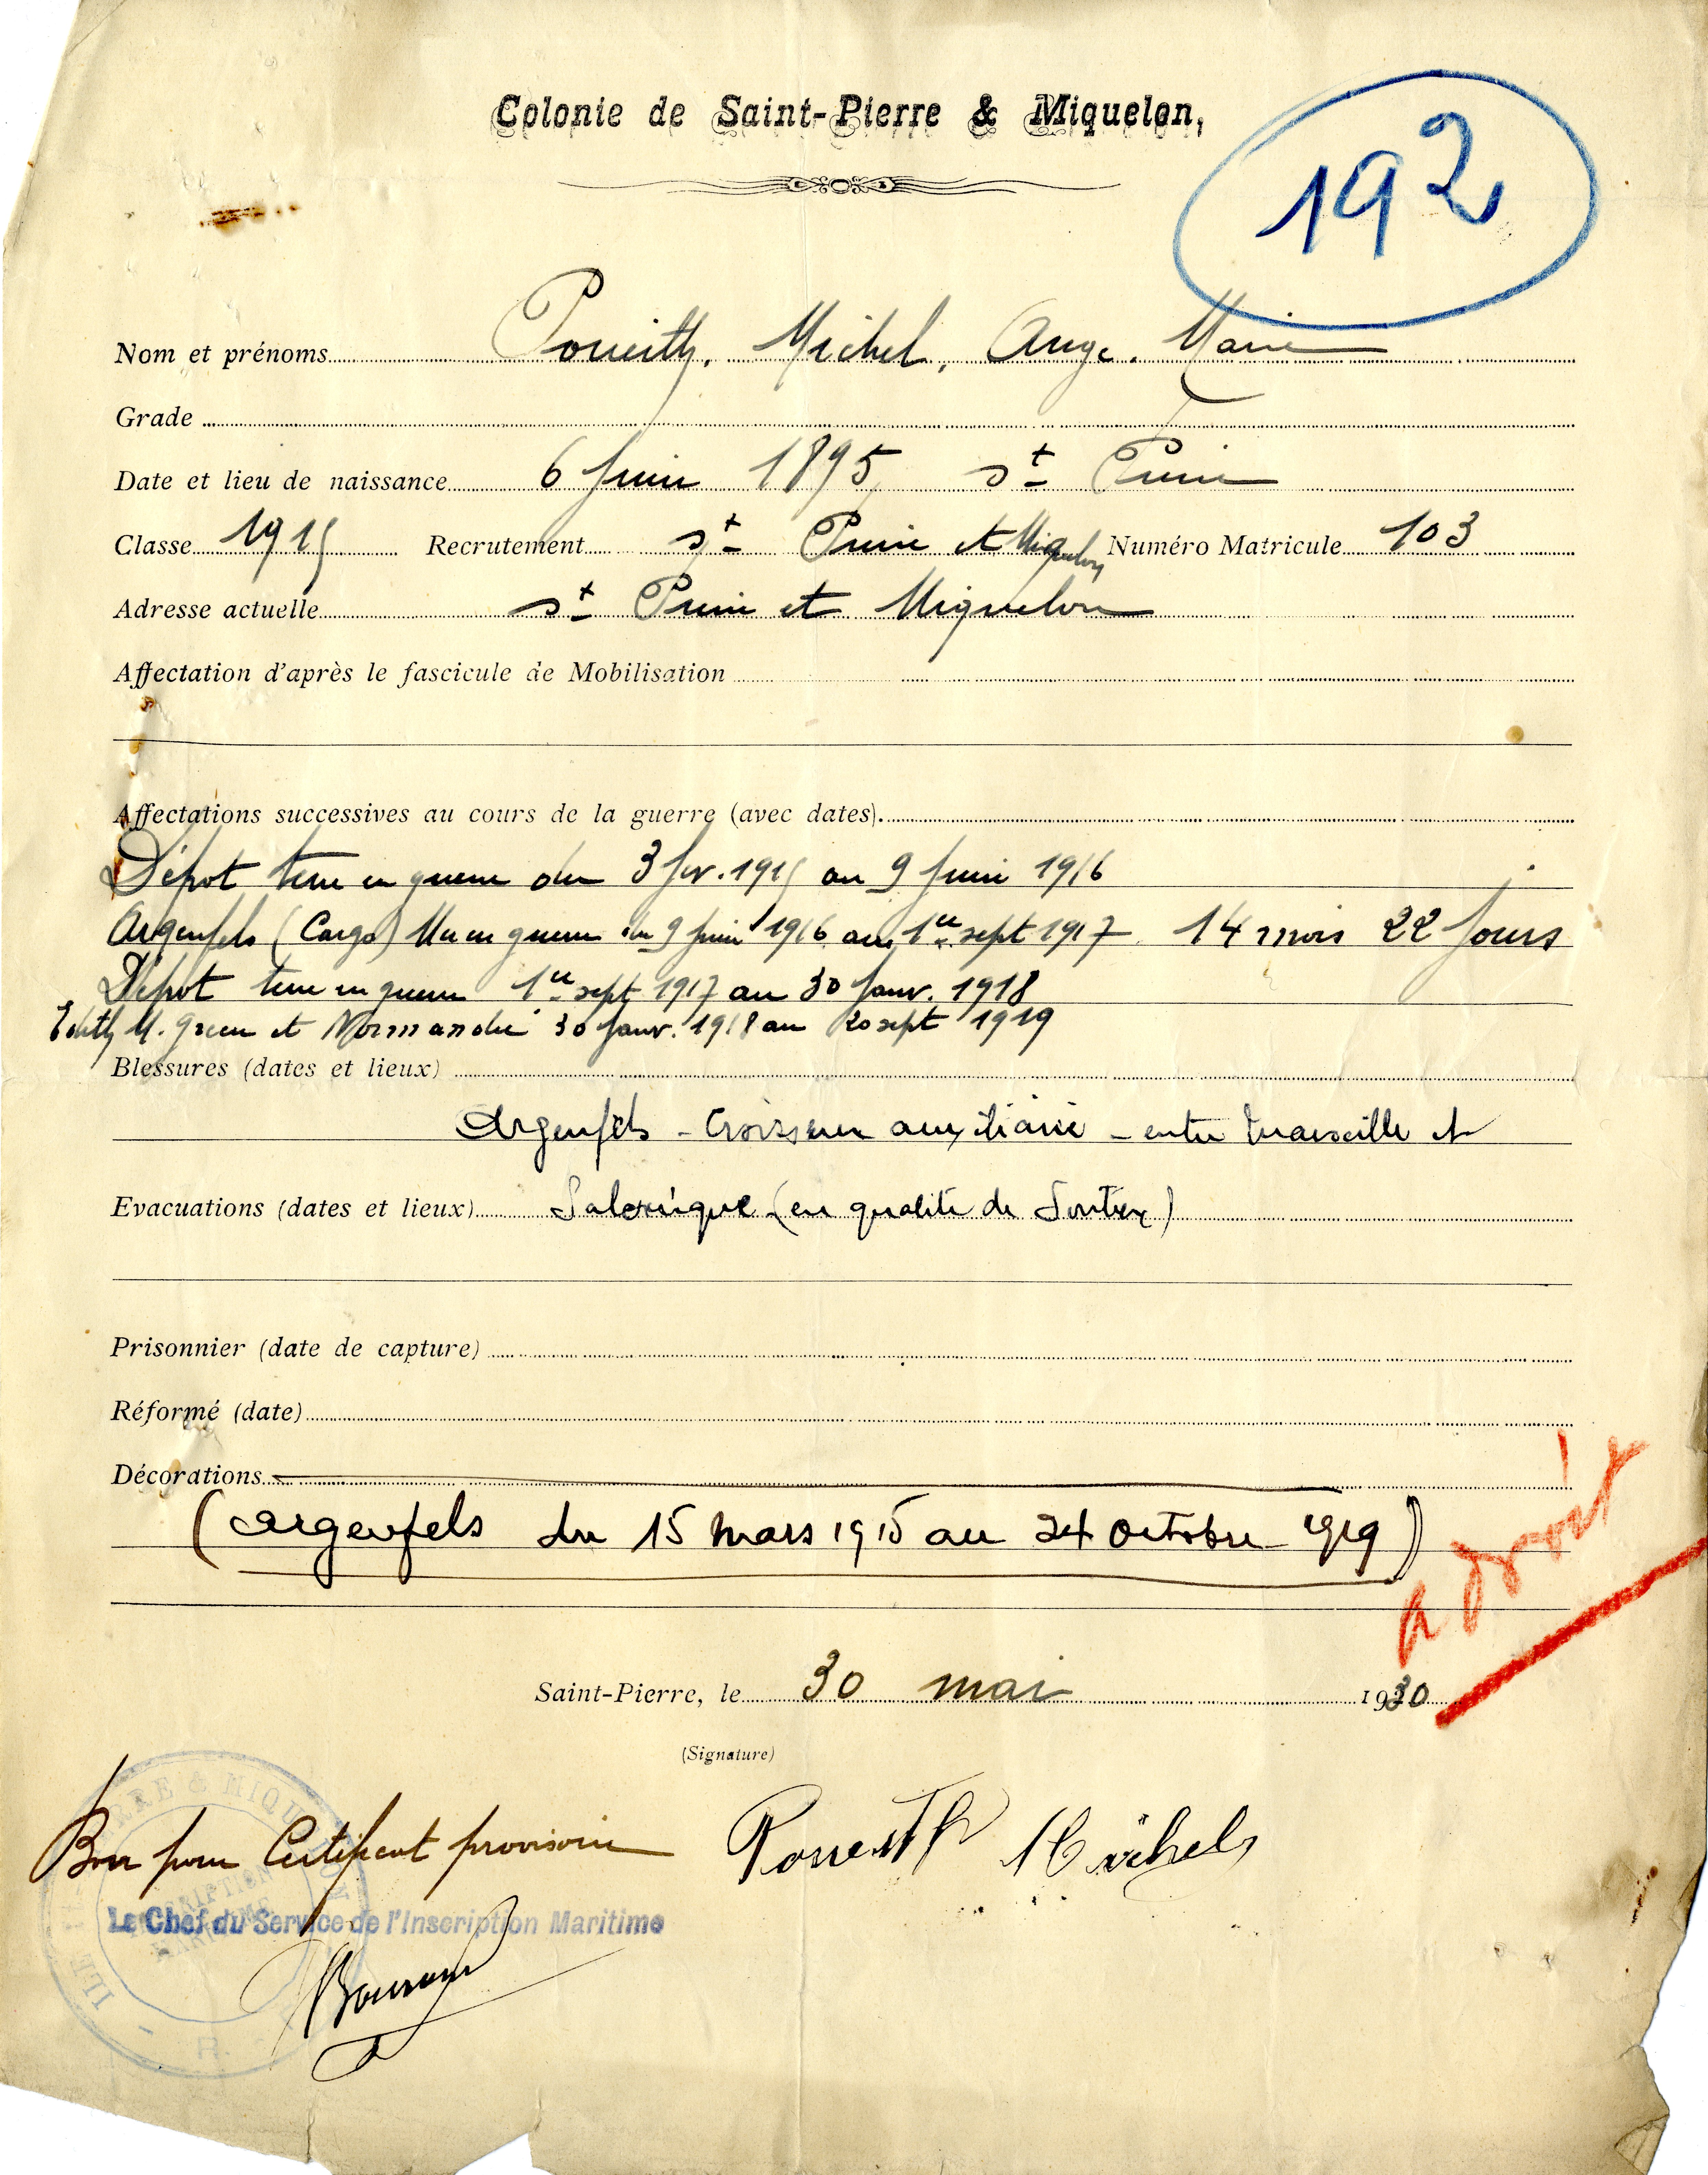 Colonie de Saint-Pierre & Miquelon,
192
Nom et prénoms Michel, Ange. Marie
Grade
Date et lieu de naissance 6 Juin 1895 St Pierre
Classe 1915 Recrutement St Pierre et Miquelon Numéro Matricule 103
Adresse actuelle St Pierre et Miquelon
Affectation d'après le fascicule de Mobilisation
Affectations successives au cours de la guerre (avec dates).
Dépot terre en guerre du 3 fev. 1915 au 9 Juin 1916
Argenfels (Cargo) Mer en guerre du 9 Juin 1916 au 1er sept 1917 14 mois 22 Jours
Dépot terre en guerre 1er sept 1917 au 30 Janv. 1918
M. Green et Normandie 30 Janv. 1918 au 20 sept 1919
Blessures (dates et lieux)
Argenfels - Croiseur auxiliaire - entre Marseille et
Evacuations (dates et lieux) Salonique (en qualité de Soutier)
Prisonnier (date de capture)
Réformé (date)
Décorations
(Argenfels du 15 mars 1915 au 24 octobre 1919)
a droit
Saint-Pierre, le 30 mai 1930
(Signature)
Bon pour Certificat provisoire
Michel
Le Chef du Service de l'Inscription Maritime